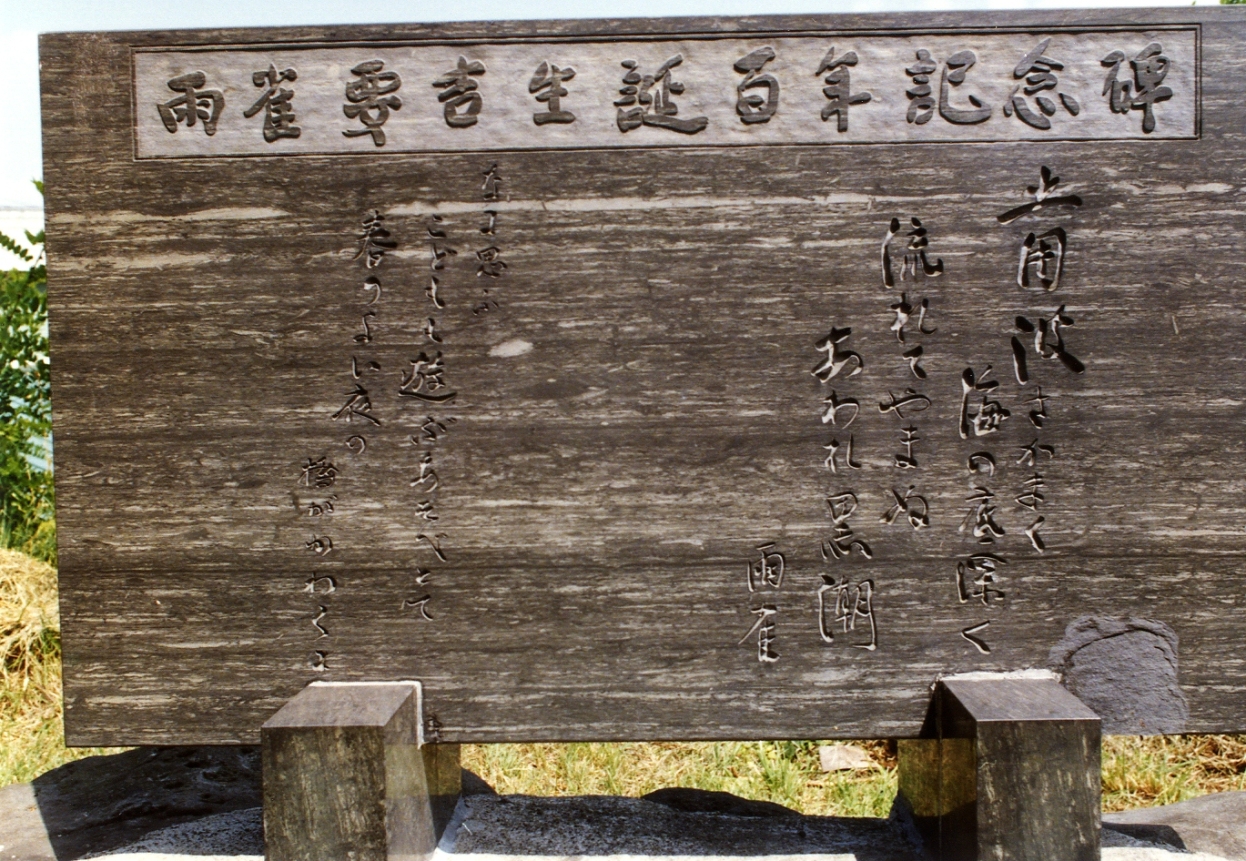 雨雀要吉生誕百年記念碑
土用波さかまく
海の底深く
流れてやまぬ
あわれ黒潮
雨雀
なに思ふ
こどもよ遊ぶあそべとて
春のよい夜の
がかわくよ